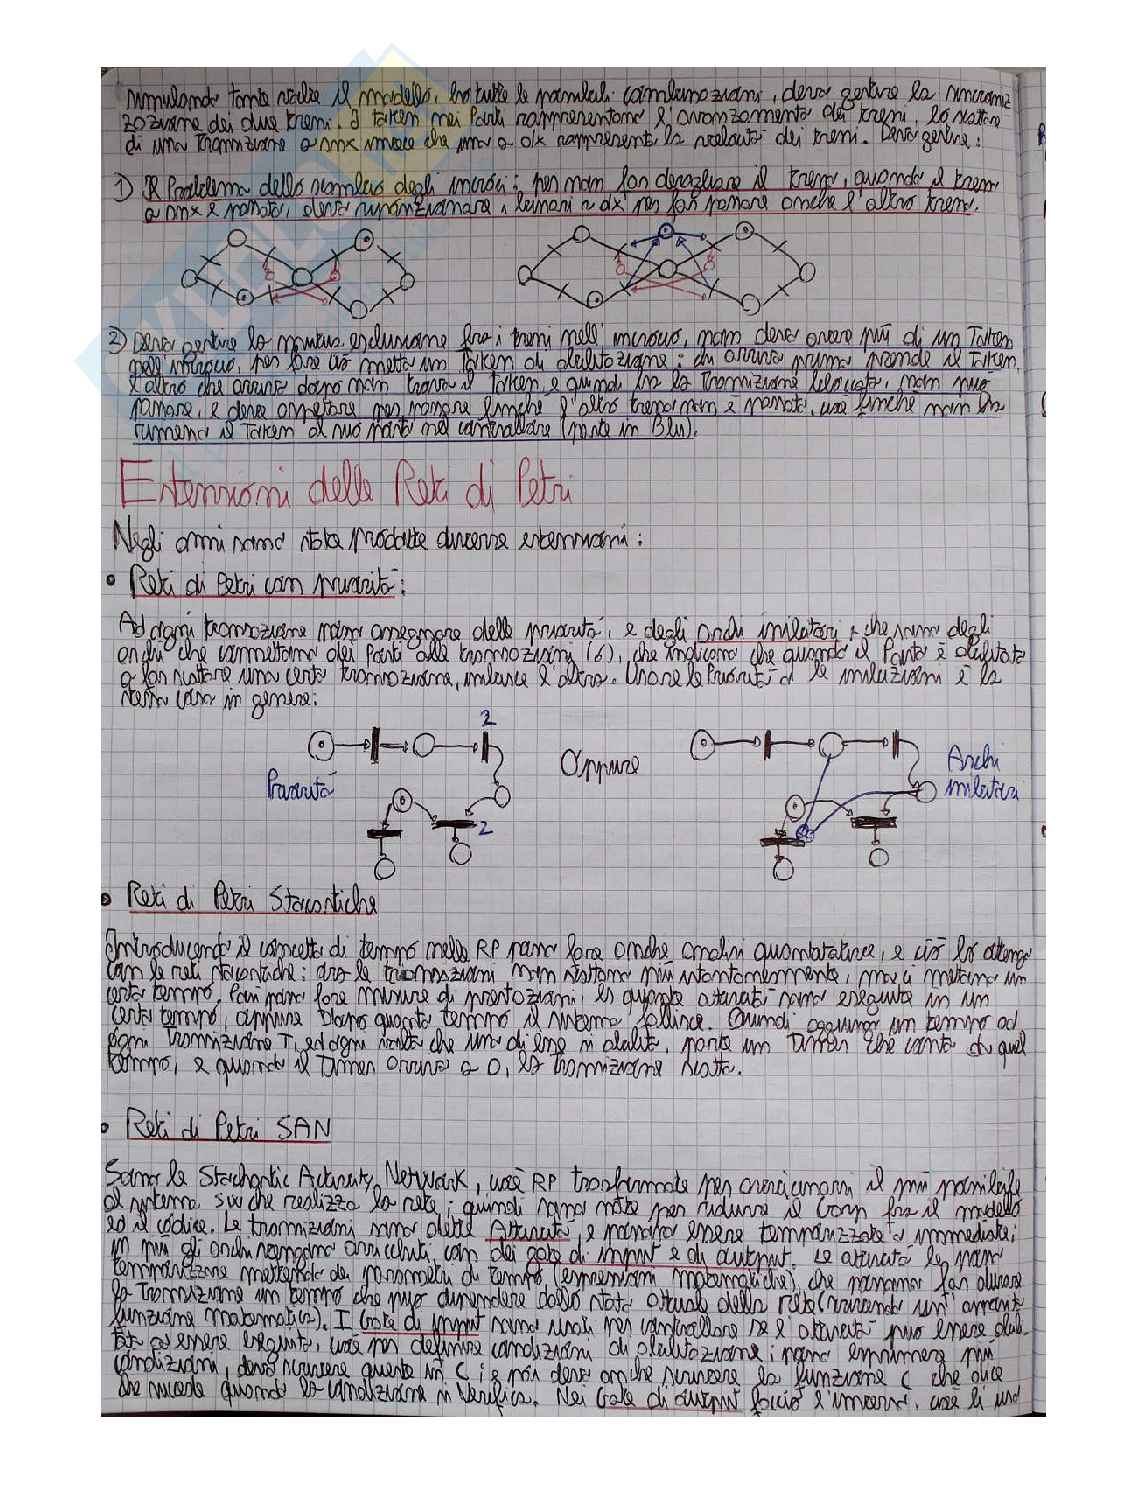 Simulando tante volte il modello, ho tutte le possibili combinazioni, devo gestire la sincroniz
zazione dei due treni. I token nei Posti rappresentano l'avanzamento dei treni, lo scattare
di una transizione a snx invece che una a dx rappresenta la velocità dei treni. Devo gestire:
1) Il Problema dello scambio degli incroci: per non far deragliare il treno, quando il treno
a snx è passato, devo riposizionare i binari a dx per far passare anche l'altro treno.
2) Devo gestire la mutua esclusione fra i treni nell'incrocio, non devo avere più di un Token
nell'incrocio, per fare ciò metto un Token di abilitazione: chi arriva prima prende il Token,
l'altro che arriva dopo non trova il Token e quindi ha la transizione bloccata, non può
passare, e deve aspettare per passare finché l'altro treno non è passato, cioè finché non ha
rimesso il Token al suo posto nel controllore (parte in Blu).
Estensioni delle Reti di Petri
Negli anni sono state prodotte diverse estensioni:
• Reti di Petri con priorità:
Ad ogni transizione posso assegnare delle priorità, e degli archi inibitori, che sono degli
archi che connettono dei Posti alle transizioni (6), che indicano che quando il Posto è abilitato
a far scattare una certa transizione, inibisce l'altra. Usare le Priorità o le inibizioni è la
stessa cosa in genere:
2
Priorità
2
Oppure
Archi
inibitori
• Reti di Petri Stocastiche
Introducendo il concetto di tempo nelle RP posso fare anche analisi quantitative, e ciò lo ottengo
con le reti stocastiche: ora le transizioni non scattano più istantaneamente, ma ci mettono un
certo tempo. Poi posso fare misure di prestazioni, es quante attività sono eseguite in un
certo tempo, oppure dopo quanto tempo il sistema fallisce. Quindi aggiungo un tempo ad
ogni Transizione T, ed ogni volta che una di esse si abilita, parte un Timer che conta da quel
tempo, e quando il Timer arriva a 0, la transizione scatta.
• Reti di Petri SAN
Sono le Stochastic Activity Network, cioè RP trasformate per avvicinarsi il più possibile
al sistema SW che realizza la rete; quindi sono nate per ridurre il Gap fra il modello
ed il codice. Le transizioni sono dette Attività, e possono essere temporizzate o immediate;
in più gli archi vengono arricchiti con dei gate di input e di output. Le attività le posso
temporizzare mettendo dei parametri di tempo (espressioni matematiche), che possono far durare
la Transizione un tempo che può dipendere dallo stato attuale della rete (usando un'
funzione matematica). I Gate di input sono usati per controllare se l'attività può essere abili-
tata ad essere eseguita, cioè per definire condizioni di abilitazione; posso esprimere più
condizioni, devo scrivere questo in C; e poi devo anche scrivere la funzione C che dice
che succede quando la condizione si verifica. Nei Gate di output faccio l'inverso, cioè li uso